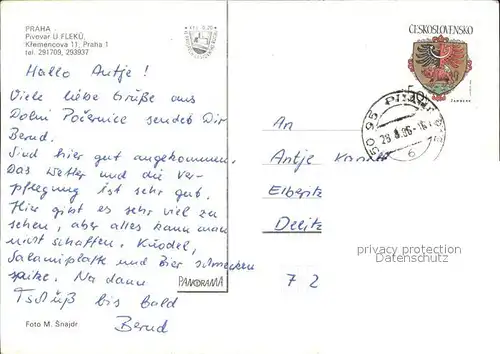 PRAHA
Pivovar U FLEKŮ,
Křemencova 11, Praha 1
tel. 291709, 293937
Hallo Antje!
Viele liebe Grüße aus
Dolni Počernice sendet Dir
Bernd.
Sind hier gut angekommen.
Das Wetter und die Ver-
pflegung ist sehr gut.
Hier gibt es sehr viel zu
sehen, aber alles kann man
nicht schaffen. Knödel,
Salamiplatte und Bier schmecken
spitze. Na dann
Tschüß bis bald
Bernd
Foto M. Šnajdr
PANORAMA
ČESKOSLOVENSKO
50
ŽAMBERK
An
Antje
Elberitz
Delitz
72
privacy protection
Datenschutz